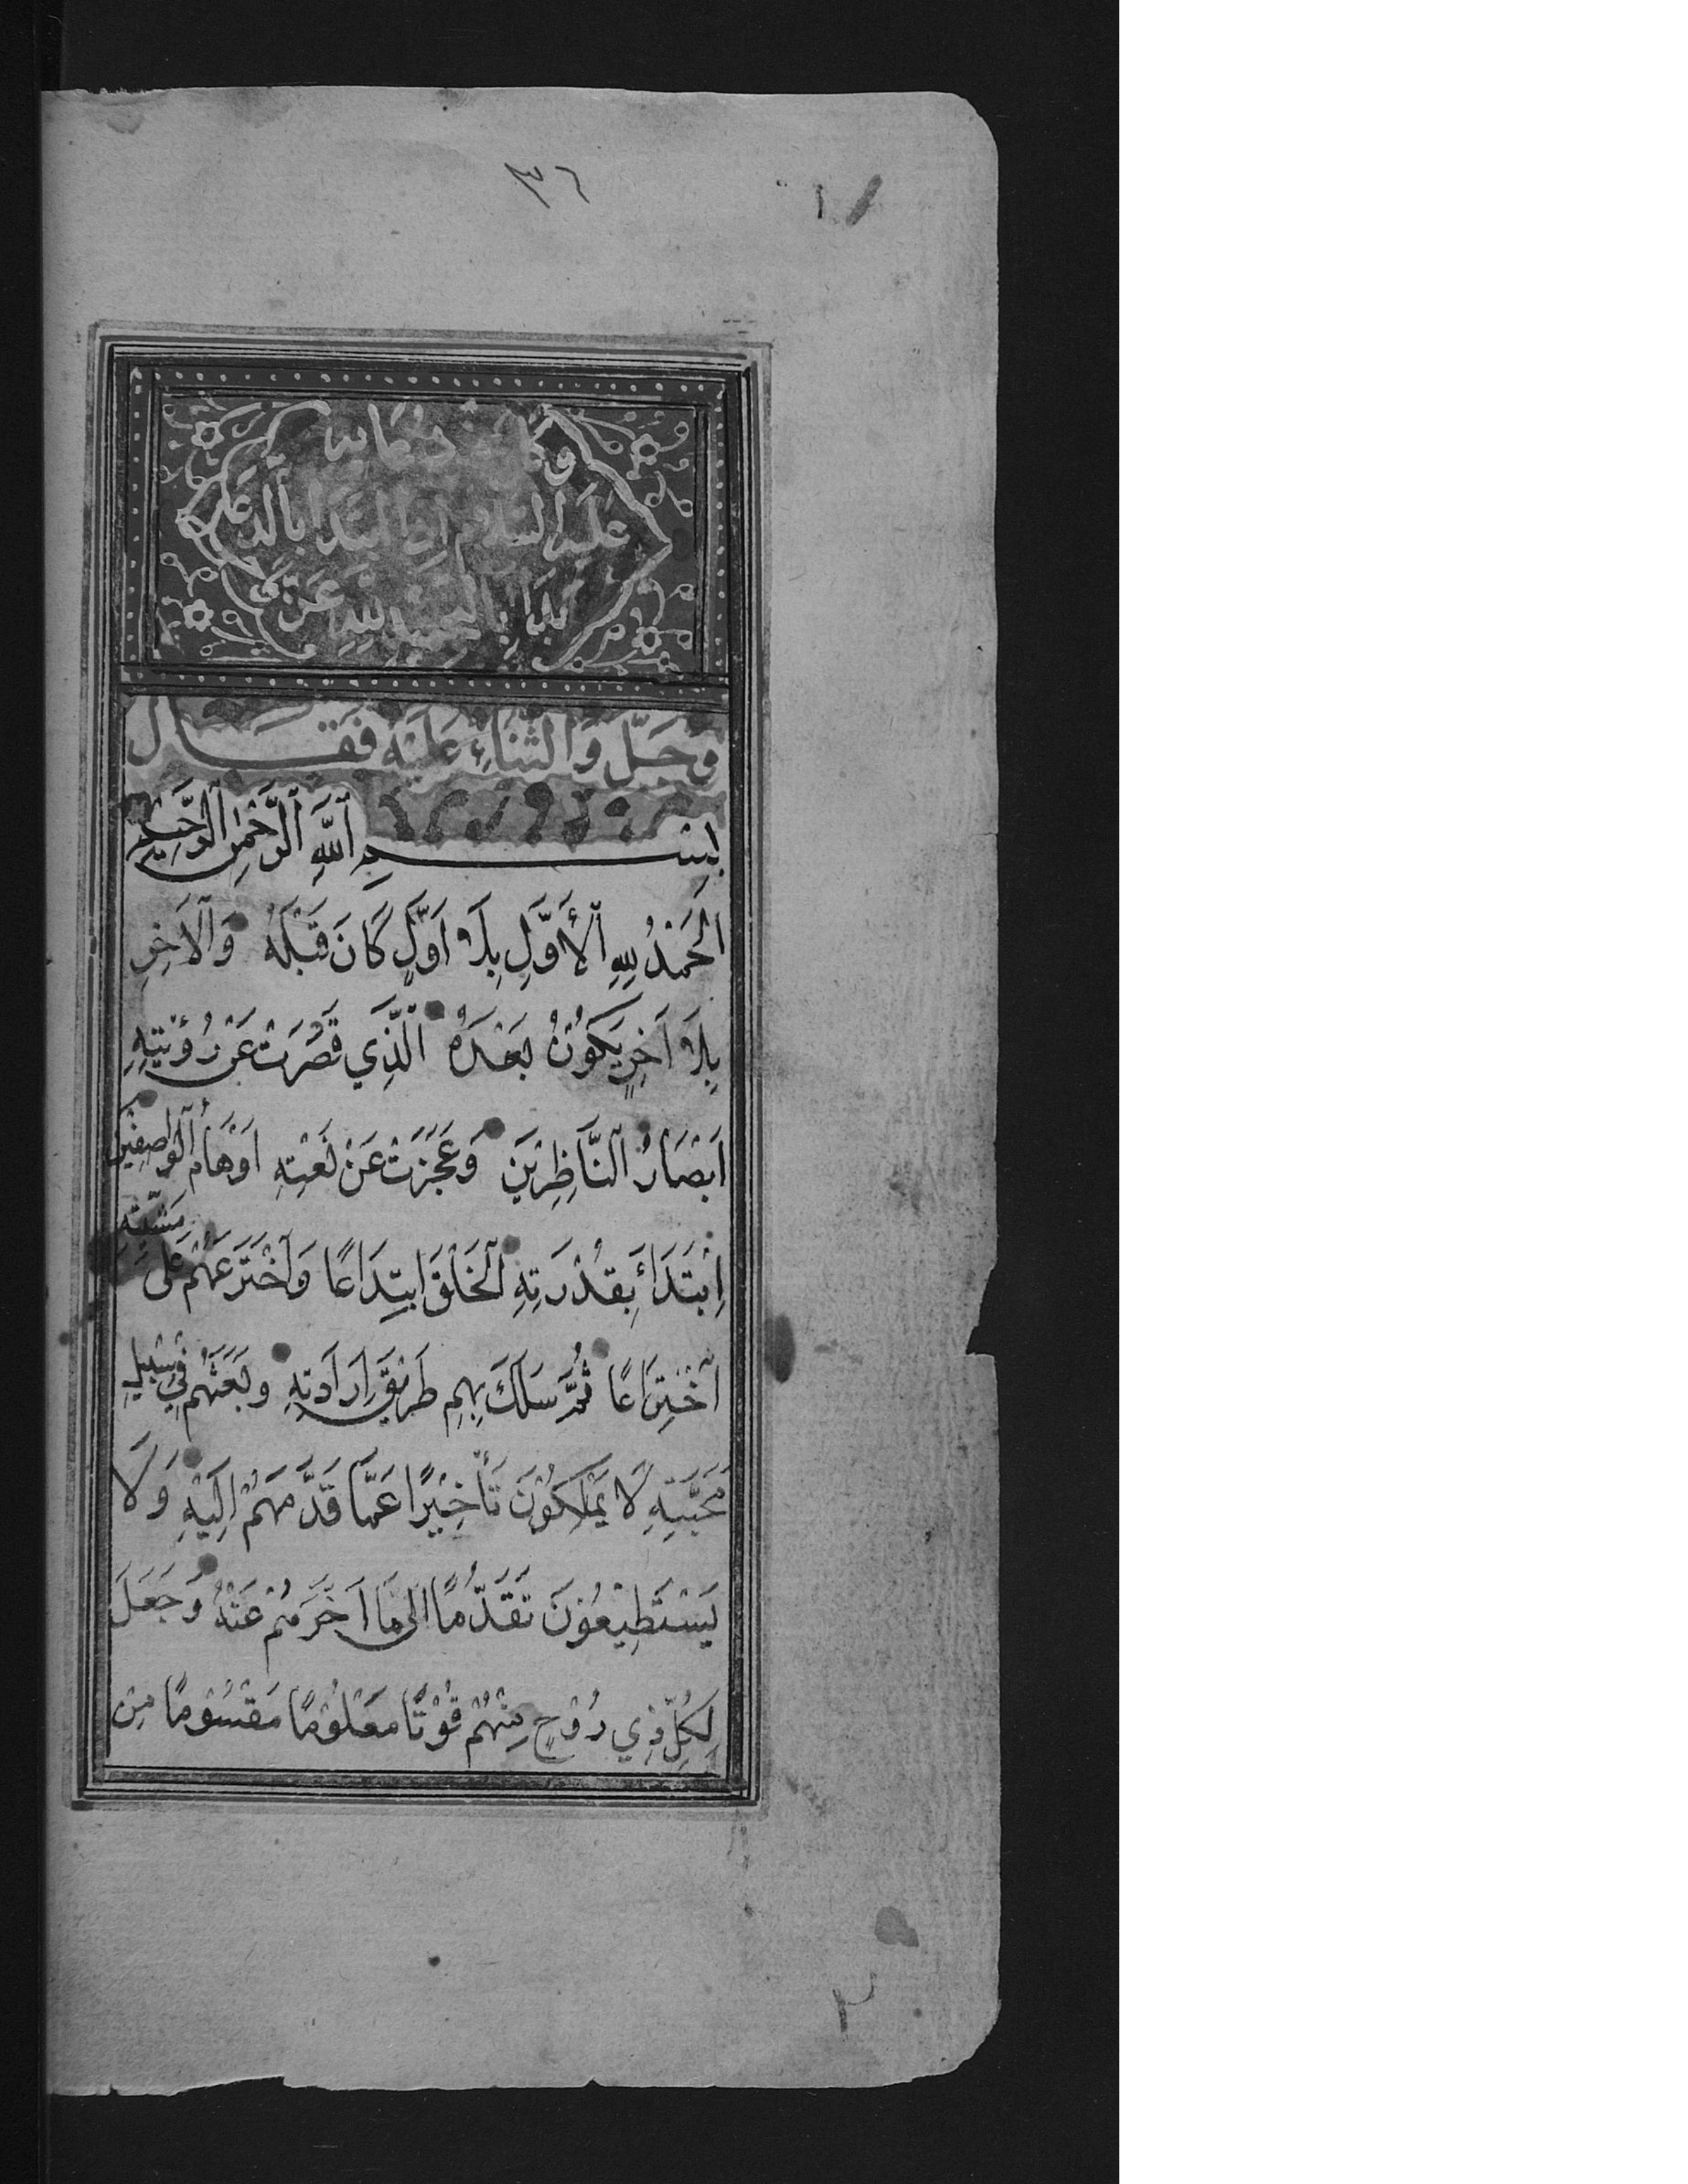 ٣٦
١
وكان من دعائه
عليه السلام اذا ابتدأ بالدعاء
بدأ بالتحميد لله عز
وَجَلَّ وَالثَّنَاءِ عَلَيْهِ فَقَالَ
بِسْمِ ٱللَّهِ ٱلرَّحْمٰنِ ٱلرَّحِيمِ
اَلْحَمْدُ لِلّٰهِ ٱلْأَوَّلِ بِلَا اَوَّلٍ كَانَ قَبْلَهُ وَٱلْاٰخِرِ
بِلَا اٰخِرٍ يَكُوْنُ بَعْدَهُ ٱلَّذِي قَصُرَتْ عَنْ رُؤْيَتِهِ
اَبْصَارُ ٱلنَّاظِرِيْنَ وَعَجَزَتْ عَنْ نَعْتِهِ اَوْهَامُ ٱلْوَاصِفِيْنَ
اِبْتَدَأَ بِقُدْرَتِهِ ٱلْخَلْقَ ابْتِدَاعًا وَاخْتَرَعَهُمْ عَلَى مَشِيَّتِهِ
اخْتِرَاعًا ثُمَّ سَلَكَ بِهِمْ طَرِيْقَ اِرَادَتِهِ وَبَعَثَهُمْ فِي سَبِيلِ
مَحَبَّتِهِ لَا يَمْلِكُوْنَ تَأْخِيْرًا عَمَّا قَدَّمَهُمْ اِلَيْهِ وَلَا
يَسْتَطِيْعُوْنَ تَقَدُّمًا اِلَى مَا اَخَّرَهُمْ عَنْهُ وَجَعَلَ
لِكُلِّ ذِي رُوْحٍ مِنْهُمْ قُوْتًا مَعْلُوْمًا مَقْسُوْمًا مِنْ